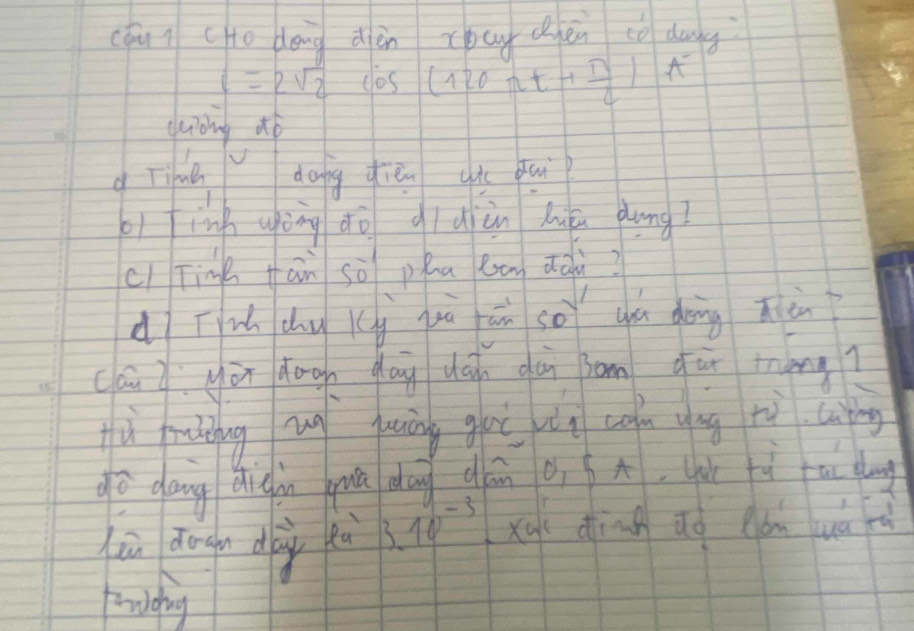 Câu 1 CHO dòng điện xoay chiều có dạng:
i = 2√2 cos (120 πt + π/4) A
cường độ
a Tính ˅ dòng điện cực đại?
b) Tính cường độ d/ điện hiệu dụng?
c) Tính tần số, pha ban đầu?
d) Tính chu kỳ và tần số của dòng điện?
Câu 2: Một đoạn dây dẫn dài 30cm đặt trong 1
từ trường và vuông góc với cảm ứng từ. Cường
độ dòng điện qua dây dẫn 0,5 A. Lực từ tác dụng
lên đoạn dây là 3.10⁻³. xác định độ lớn của từ
trường